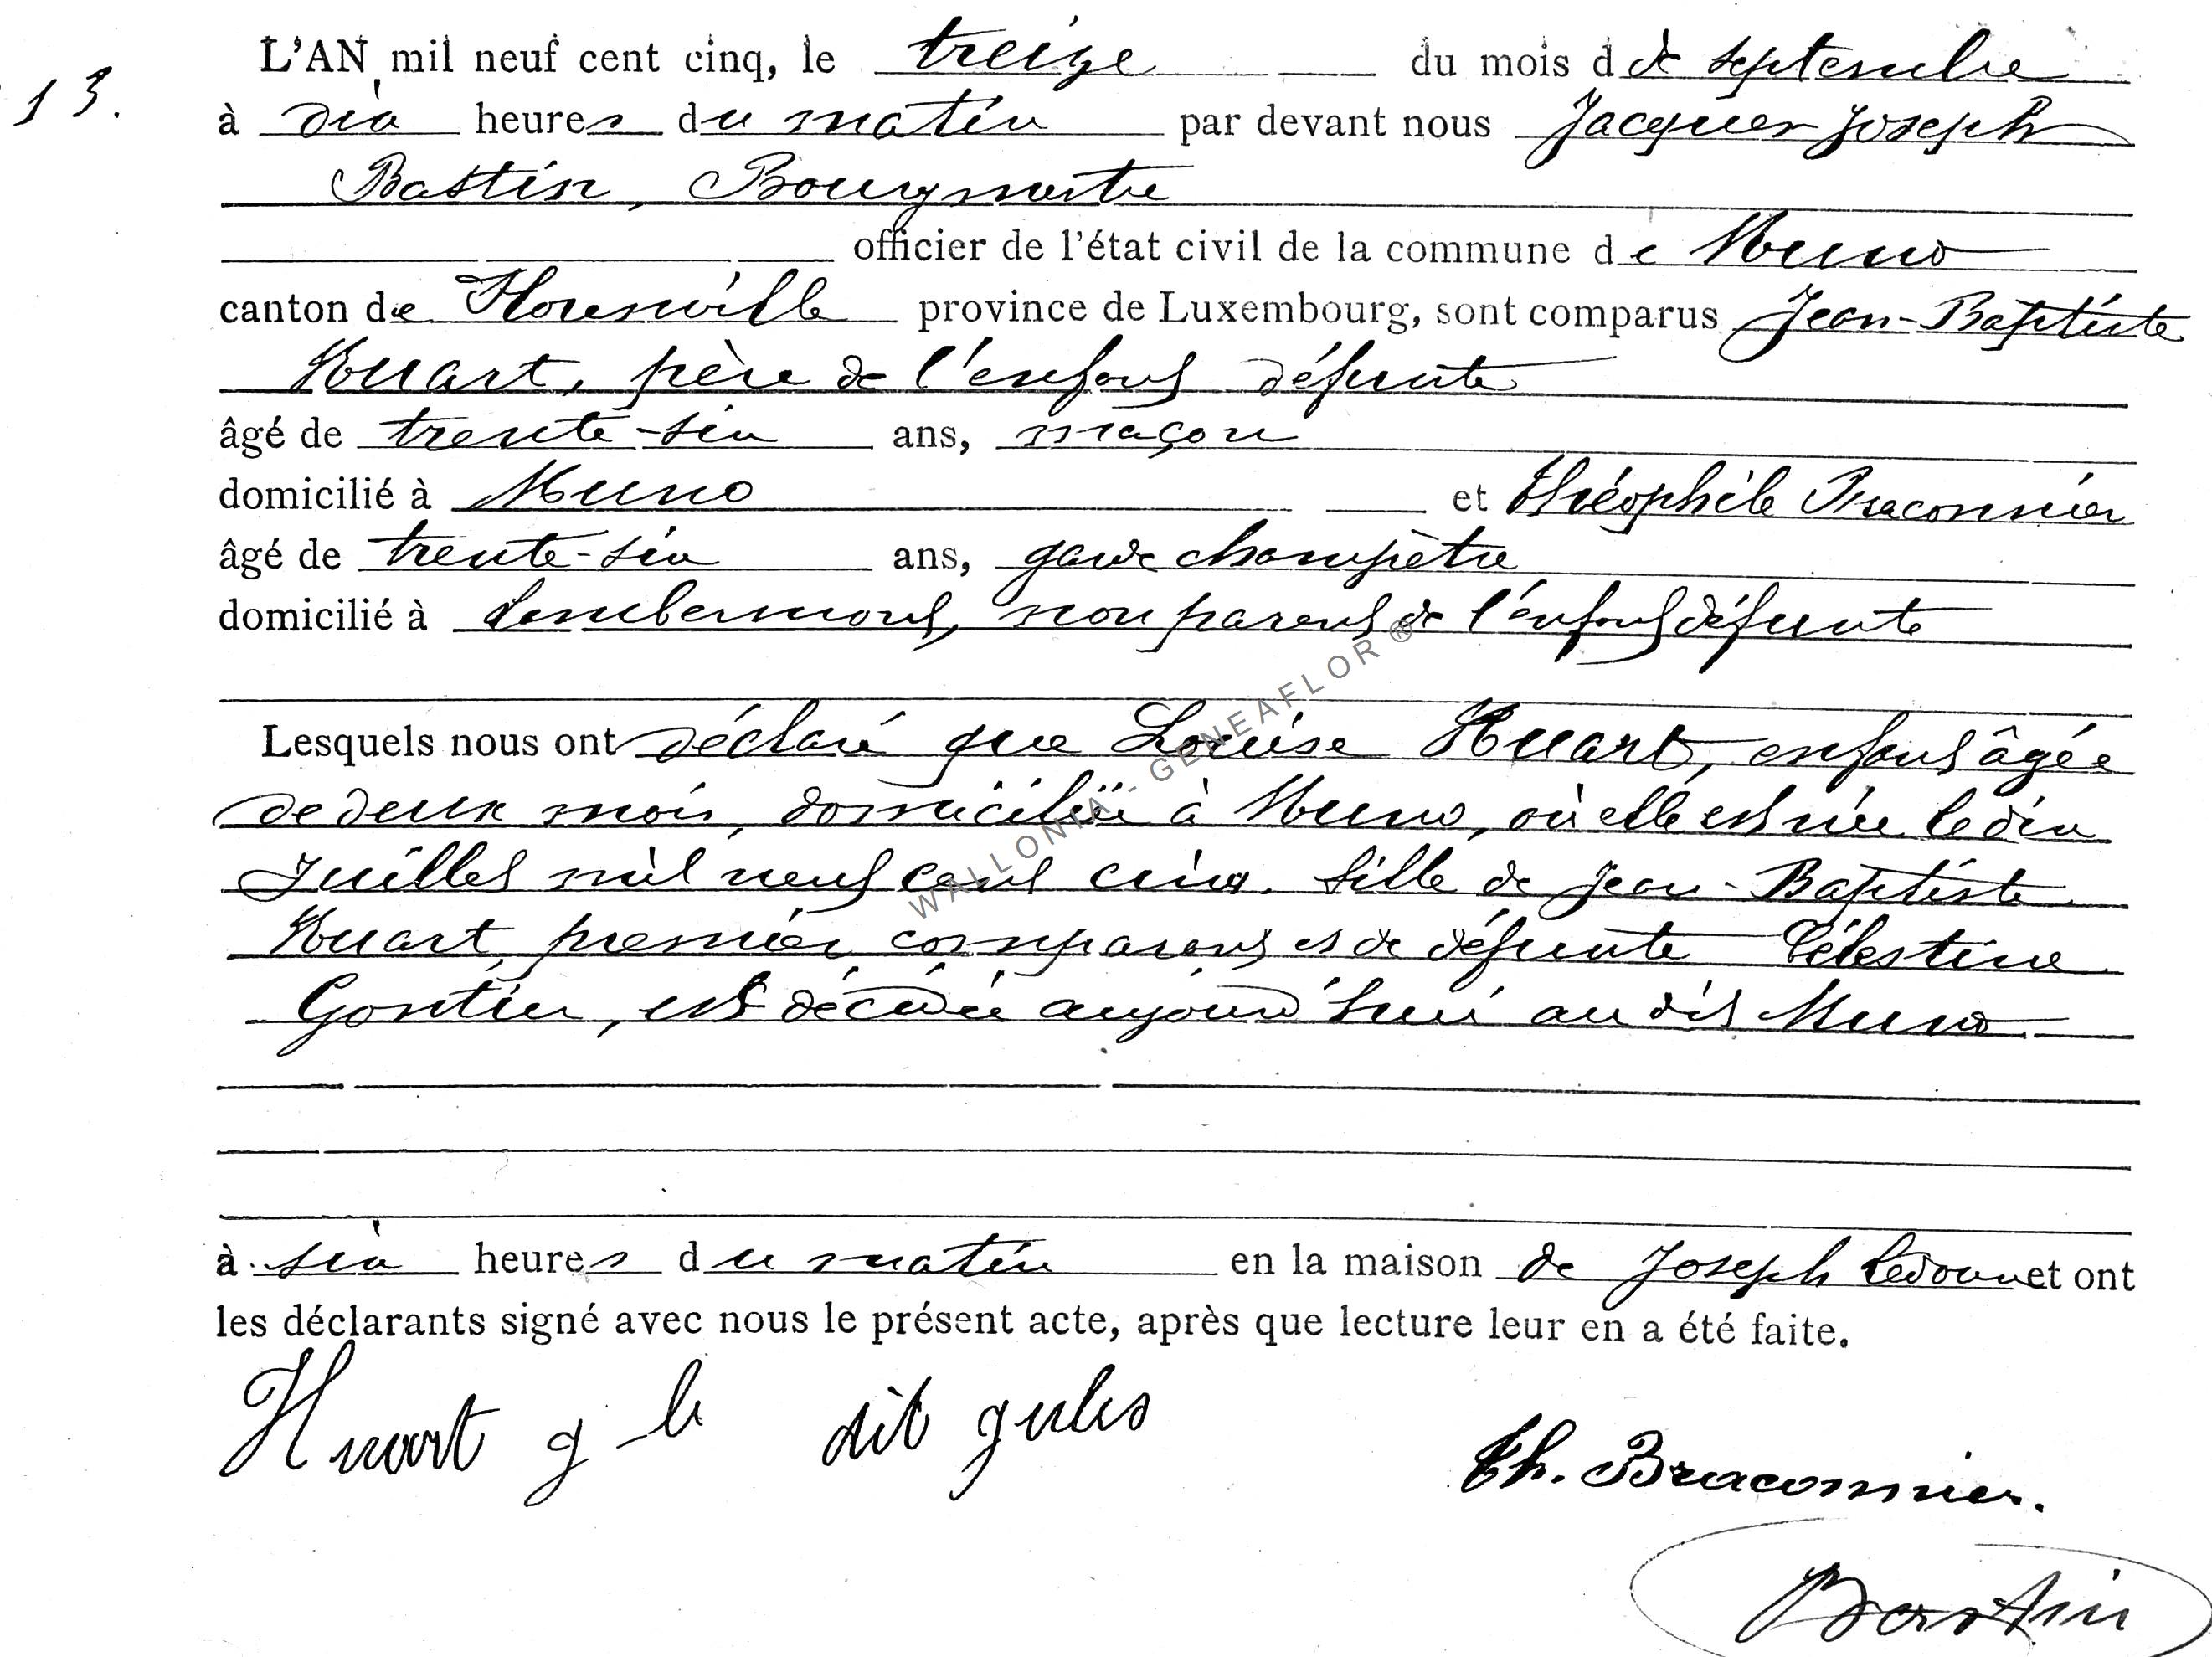 L'AN mil neuf cent cinq, le treize du mois de septembre
13.
à dix heures du matin par devant nous Jacques Joseph
Bastin, Bourgmestre
officier de l'état civil de la commune de Muno
canton de Florenville province de Luxembourg, sont comparus Jean-Baptiste
Huart, père de l'enfant défunte
âgé de trente-six ans, maçon
domicilié à Muno et Théophile Braconnier
âgé de trente-six ans, garde champêtre
domicilié à Lambermont, non parent de l'enfant défunte
Lesquels nous ont déclaré que Louise Huart, enfant âgée
de deux mois, domiciliée à Muno, où elle est née le dix
Juillet mil neuf cent cinq. fille de Jean-Baptiste
Huart, premier comparant et de défunte Célestine
Gontier, est décédée aujourd'hui au dit Muno
à six heures du matin en la maison de Joseph et ont
les déclarants signé avec nous le présent acte, après que lecture leur en a été faite.
Huart dit jules
Th. Braconnier.
Bastin
WALLONIA - GENEAFLOR ®